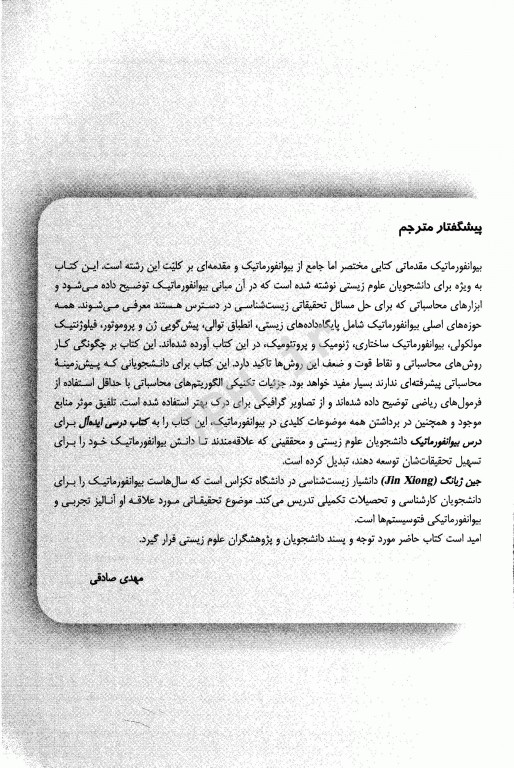 پیشگفتار مترجم
بیوانفورماتیک مقدماتی کتابی مختصر اما جامع از بیوانفورماتیک و مقدمه‌ای بر کلیّت این رشته است. ایـن کتـاب
به ویژه برای دانشجویان علوم زیستی نوشته شده است که در آن مبانی بیوانفورماتیـک توضیـح داده مـی‌شـود و
ابزارهای محاسباتی که برای حل مسائل تحقیقاتی زیست‌شناسـی در دسـترس هـستند معرفـی مـی‌شـوند. همـه
حوزه‌های اصلی بیوانفورماتیک شامل پایگاه‌داده‌های زیستی، انطباق توالی، پیش‌گویی ژن و پروموتور، فیلوژنتیـک
مولکولی، بیوانفورماتیک ساختاری، ژنومیک و پروتئومیک، در این کتاب آورده شده‌اند. این کتاب بر چگونگی کـار
روش‌های محاسباتی و نقاط قوت و ضعف این روش‌ها تاکید دارد. این کتاب برای دانـشجویانی کـه پـیش‌زمینـۀ
محاسباتی پیشرفته‌ای ندارند بسیار مفید خواهد بود. جزئیات تکنیکی الگوریتم‌های محاسباتی با حداقل اسـتفاده از
فرمول‌های ریاضی توضیح داده شده‌اند و از تصاویر گرافیکی برای درک بهتر استفاده شده است. تلفیق موثر منابع
موجود و همچنین در برداشتن همه موضوعات کلیدی در بیوانفورماتیک، این کتاب را به کتاب درسی ایده‌آل بـرای
درس بیوانفورماتیک دانشجویان علوم زیستی و محققینی که علاقه‌مندند تـا دانـش بیوانفورماتیـک خـود را بـرای
تسهیل تحقیقات‌شان توسعه دهند، تبدیل کرده است.
جین ژیانگ (Jin Xiong) دانشیار زیست‌شناسی در دانشگاه تکزاس است که سال‌هاست بیوانفورماتیـک را بـرای
دانشجویان کارشناسی و تحصیلات تکمیلی تدریس می‌کند. موضوع تحقیقـاتی مـورد علاقـه او آنـالیز تجربـی و
بیوانفورماتیکی فتوسیستم‌ها است.
امید است کتاب حاضر مورد توجه و پسند دانشجویان و پژوهشگران علوم زیستی قرار گیرد.
مهدی صادقی